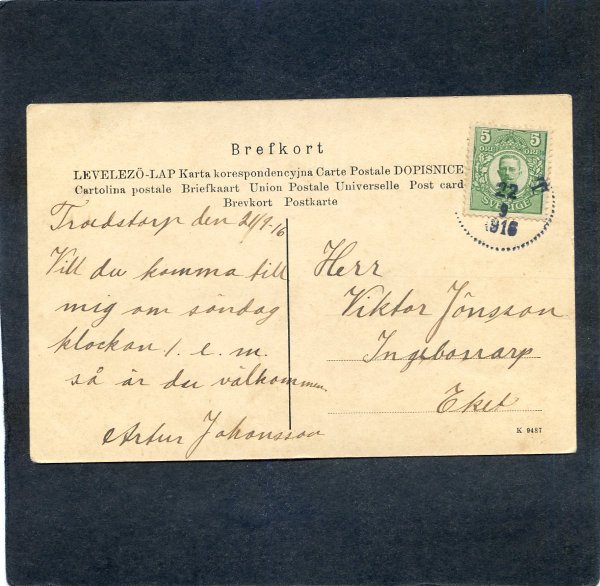 Brefkort
LEVELEZÖ-LAP Karta korespondencyjna Carte Postale DOPISNICE
Cartolina postale Briefkaart Union Postale Universelle Post card
Brevkort Postkarte
5 5
ÖRE ÖRE
SVERIGE
22
9
1916
den 21/9-16
Vill du komma till
mig om söndag
klockan 1. e. m.
så är du välkommen.
Artur Johansson
Herr
Viktor Jönsson
Ingebonarp
Eket
K 9487